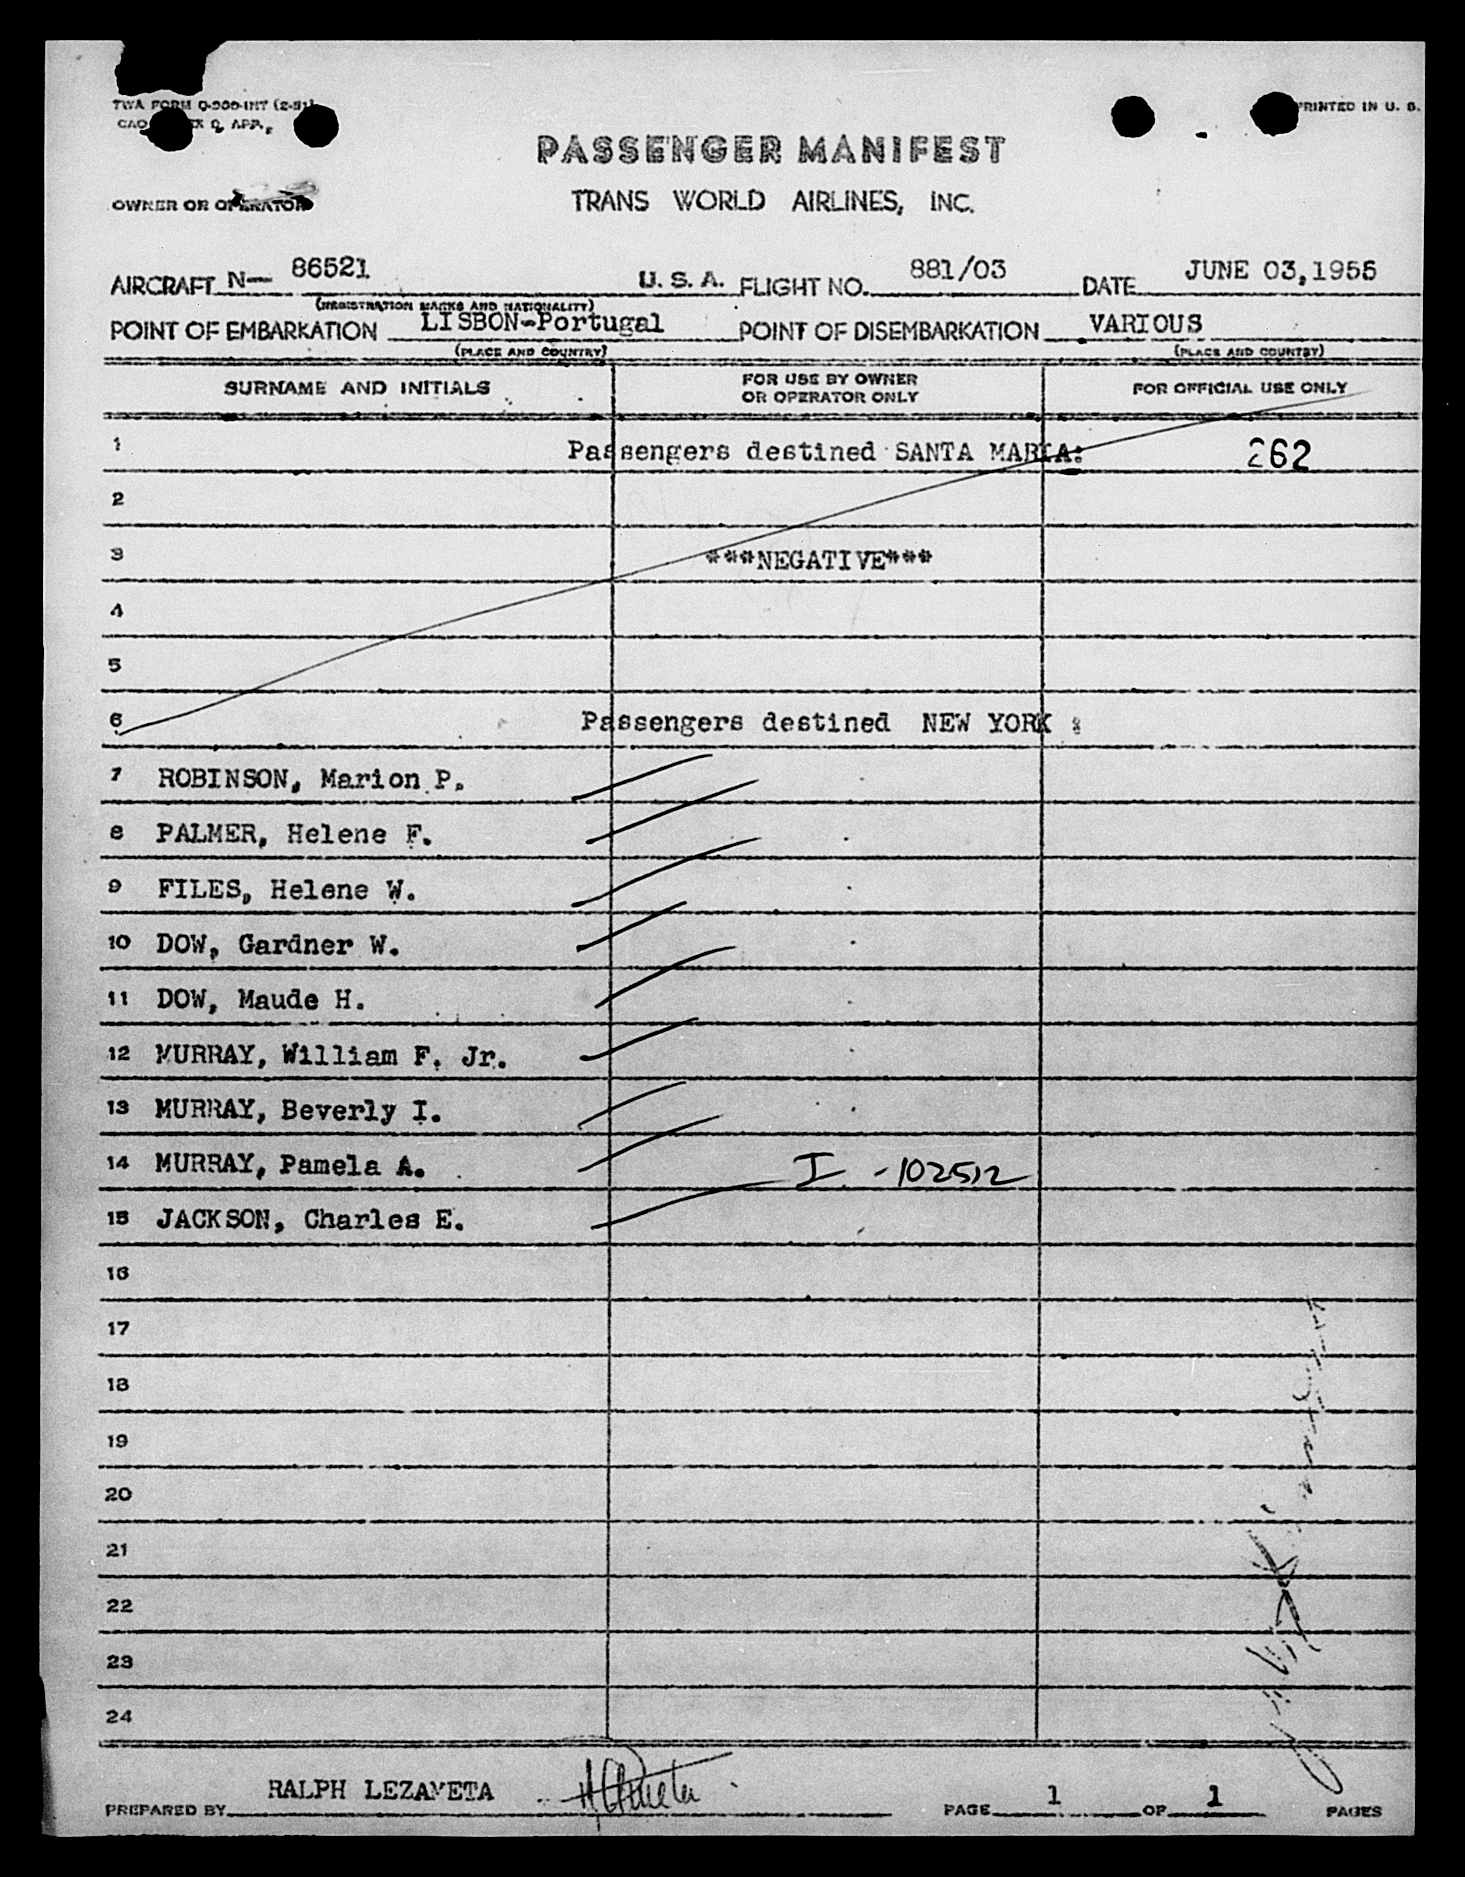 TWA FORM O-300-INT (2-51)
PRINTED IN U. S.
PASSENGER MANIFEST
OWNER OR OPERATOR
TRANS WORLD AIRLINES, INC.
AIRCRAFT N— 86521 U. S. A. FLIGHT NO. 881/03 DATE JUNE 03,1955
(REGISTRATION MARKS AND NATIONALITY)
POINT OF EMBARKATION LISBON-Portugal POINT OF DISEMBARKATION VARIOUS
(PLACE AND COUNTRY) (PLACE AND COUNTRY)
SURNAME AND INITIALS FOR USE BY OWNER OR OPERATOR ONLY FOR OFFICIAL USE ONLY
1 Passengers destined SANTA MARIA: 262
2
3 ***NEGATIVE***
4
5
6 Passengers destined NEW YORK :
7 ROBINSON, Marion P.
8 PALMER, Helene F.
9 FILES, Helene W.
10 DOW, Gardner W.
11 DOW, Maude H.
12 MURRAY, William F. Jr.
13 MURRAY, Beverly I.
14 MURRAY, Pamela A. I -102512
15 JACKSON, Charles E.
16
17
18
19
20
21
22
23
24
PREPARED BY RALPH LEZAMETA PAGE 1 OF 1 PAGES